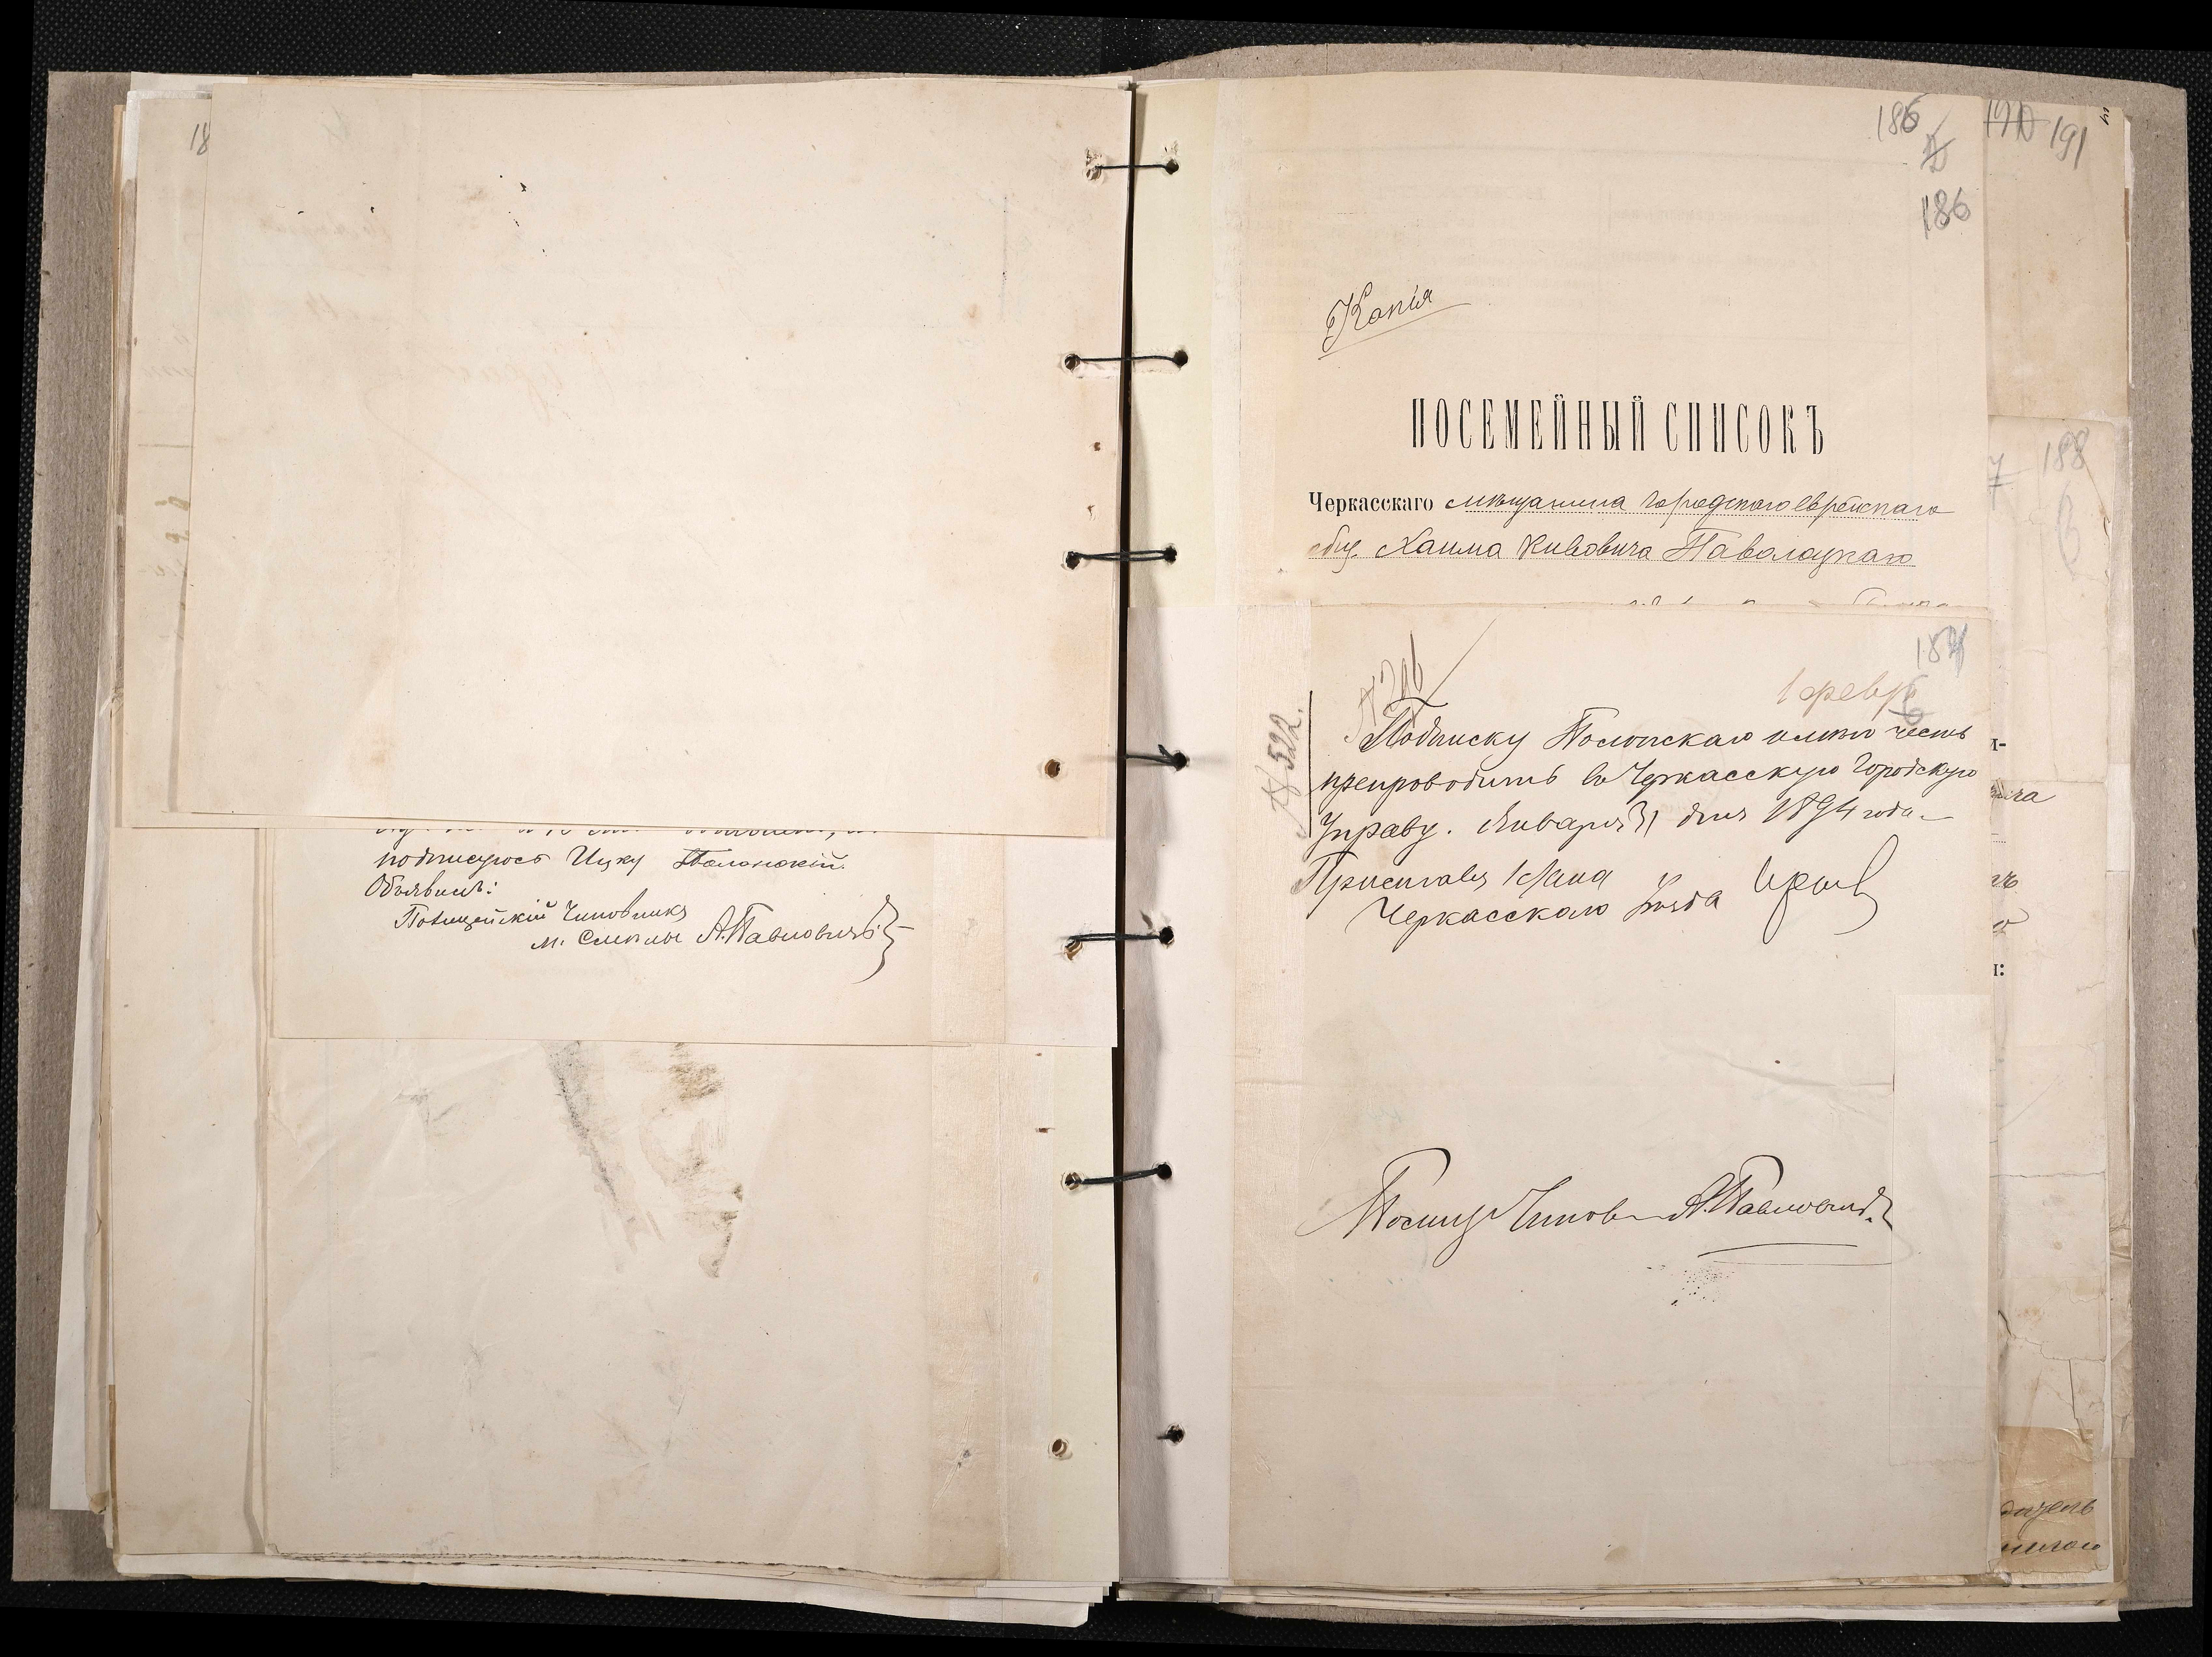 18
подписуюсь Ицку Полонскій.
Объявилъ:
Полицейскій Чиновникъ
м. Смѣлы А. Павловичъ
186
186
190 191
188
Копія
ПОСЕМЕЙНЫЙ СПИСОКЪ
Черкасскаго мѣщанина городскаго еврейскаго
общ. Хаима Кивовича Паволоцкаго
187
1 февр
№ 522.
Подписку Полонскаго имѣю честь
препроводить въ Черкасскую Городскую
Управу. Января 31 дня 1894 года.
Приставъ 1 стана
Черкасскаго уѣзда
Полиц Чинов А. Павловичъ